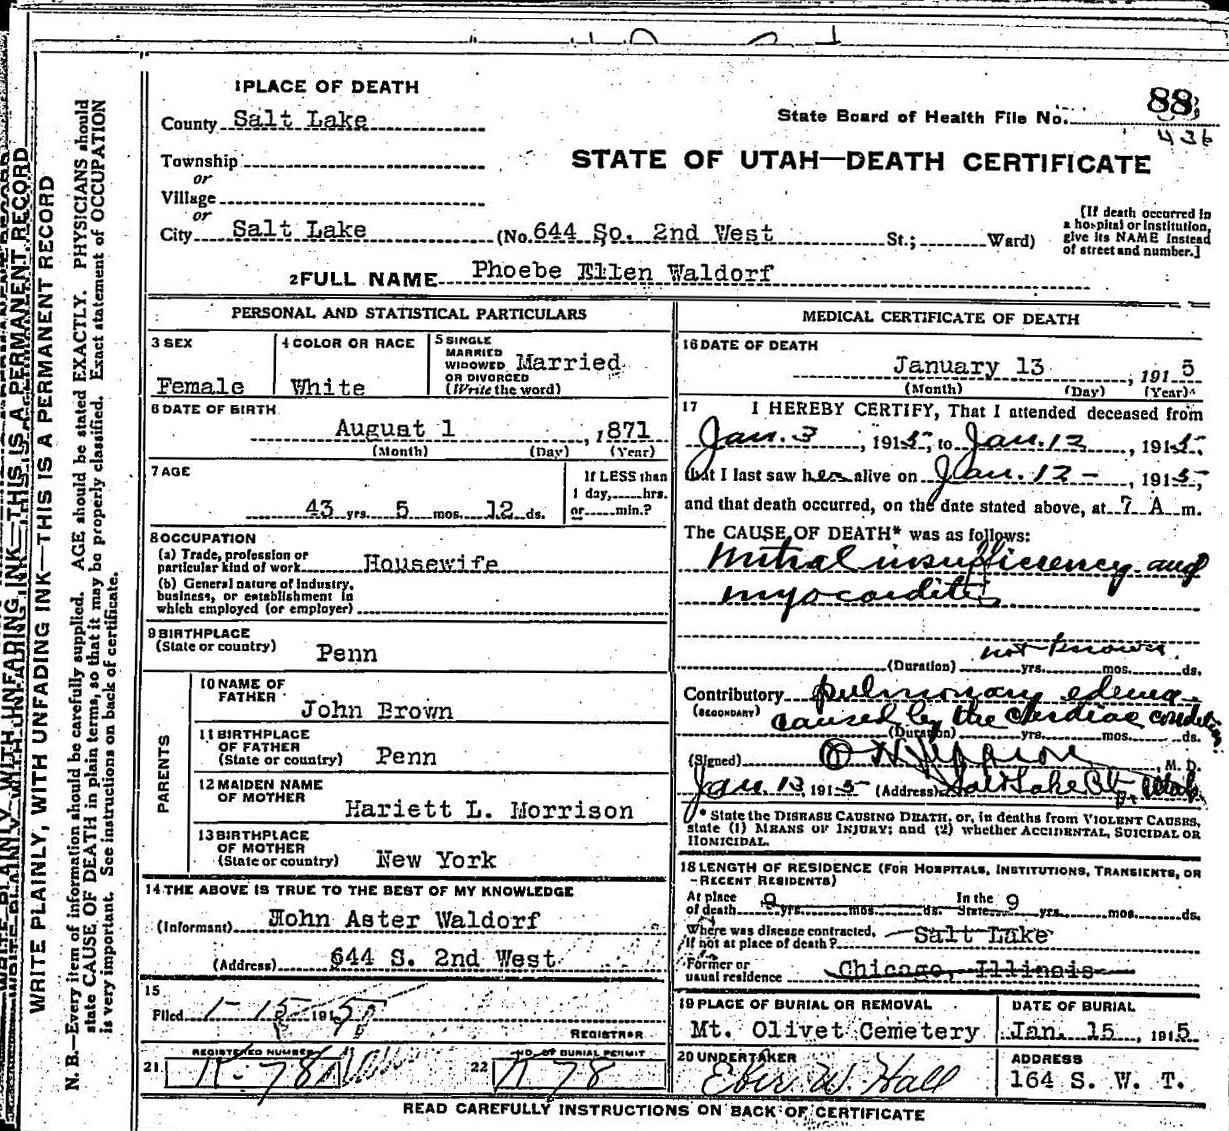 1 PLACE OF DEATH
County Salt Lake
State Board of Health File No. 88
436
Township
or
Village
or
City Salt Lake (No. 644 So. 2nd West St.; Ward)
STATE OF UTAH—DEATH CERTIFICATE
[If death occurred in
a hospital or institution,
give its NAME instead
of street and number.]
2 FULL NAME Phoebe Ellen Waldorf
PERSONAL AND STATISTICAL PARTICULARS
3 SEX
Female
4 COLOR OR RACE
White
5 SINGLE
MARRIED
WIDOWED
OR DIVORCED
(Write the word)
Married
6 DATE OF BIRTH
August 1, 1871
(Month) (Day) (Year)
7 AGE
43 yrs. 5 mos. 12 ds.
If LESS than
1 day, hrs.
or min.?
8 OCCUPATION
(a) Trade, profession or
particular kind of work Housewife
(b) General nature of industry,
business, or establishment in
which employed (or employer)
9 BIRTHPLACE
(State or country) Penn
PARENTS
10 NAME OF
FATHER John Brown
11 BIRTHPLACE
OF FATHER
(State or country) Penn
12 MAIDEN NAME
OF MOTHER Hariett L. Morrison
13 BIRTHPLACE
OF MOTHER
(State or country) New York
14 THE ABOVE IS TRUE TO THE BEST OF MY KNOWLEDGE
(Informant) John Aster Waldorf
(Address) 644 S. 2nd West
15
Filed 1-15 1915
REGISTRAR
REGISTERED NUMBER
21 K-78
NO. OF BURIAL PERMIT
22 K 78
MEDICAL CERTIFICATE OF DEATH
16 DATE OF DEATH
January 13, 1915
(Month) (Day) (Year)
17 I HEREBY CERTIFY, That I attended deceased from
Jan. 3, 1915, to Jan. 12, 1915,
that I last saw her alive on Jan. 12 -, 1915,
and that death occurred, on the date stated above, at 7 A m.
The CAUSE OF DEATH* was as follows:
Mitral insufficiency and
myocarditis
not known
(Duration) yrs. mos. ds.
Contributory pulmonary edema
(SECONDARY) caused by the cardiac condition
(Duration) yrs. mos. ds.
(Signed) M. D.
Jan. 13, 1915 (Address) Salt Lake City Utah
* State the DISEASE CAUSING DEATH, or, in deaths from VIOLENT CAUSES,
state (1) MEANS OF INJURY; and (2) whether ACCIDENTAL, SUICIDAL OR
HOMICIDAL.
18 LENGTH OF RESIDENCE (FOR HOSPITALS, INSTITUTIONS, TRANSIENTS, OR
RECENT RESIDENTS)
At place
of death 9 yrs. mos. ds. In the State 9 yrs. mos. ds.
Where was disease contracted,
If not at place of death? Salt Lake
Former or
usual residence Chicago, Illinois
19 PLACE OF BURIAL OR REMOVAL
Mt. Olivet Cemetery
DATE OF BURIAL
Jan. 15, 1915
20 UNDERTAKER
Eber W. Hall
ADDRESS
164 S. W. T.
READ CAREFULLY INSTRUCTIONS ON BACK OF CERTIFICATE
WRITE PLAINLY, WITH UNFADING INK—THIS IS A PERMANENT RECORD
WRITE PLAINLY, WITH UNFADING INK—THIS IS A PERMANENT RECORD
N. B.—Every item of information should be carefully supplied. AGE should be stated EXACTLY. PHYSICIANS should
state CAUSE OF DEATH in plain terms, so that it may be properly classified. Exact statement of OCCUPATION
is very important. See instructions on back of certificate.